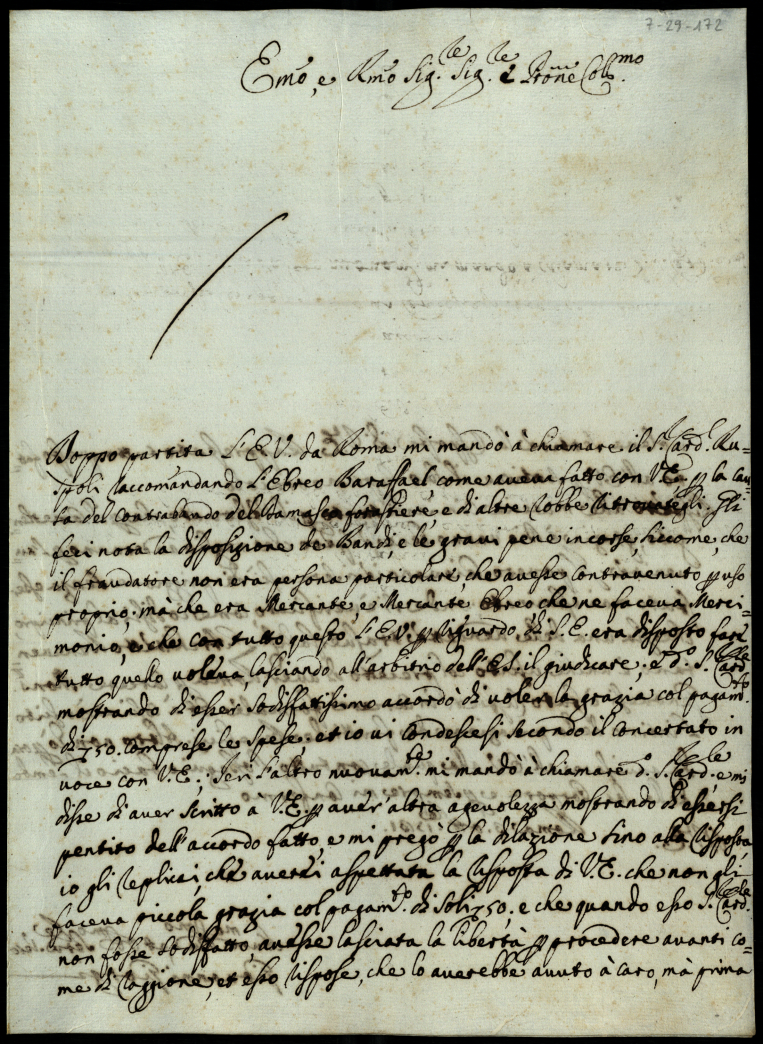 7-29-172
Emo, e Rmo Sig.re Sig.re e Prone Colmo.
Doppo partita l'E.V. da Roma mi mandò à chiamare il S.r Card.l Ru=
spoli raccomandando l'Ebreo Baraffael come aveva fatto con V.E. p la cau=
sa del contrabando del Damasco forastiere, e di altre robbe ritrovategli. Gli
feci nota la disposizione de Bandi, e le gravi pene incorse, siccome, che
il fraudatore non era persona particolare, che avesse contravenuto p uso
proprio; mà che era Mercante, e Mercante Ebreo che ne faceva Merci=
monio, e che con tutto questo l'E.V. p riguardo di S.E. era disposto fare
tutto quello voleva, lasciando all'arbitrio dell'E.S. il giudicare; e d.o S.r Card.le
mostrando di esser sodisfattissimo accordò di voler la grazia col pagam.to
di 750. comprese le spese; et io vi condescesi secondo il concertato in
voce con V.E.; Jeri l'altro nuovam.te mi mandò à chiamare d.o S.r Card.le e mi
disse di aver scritto à V.E. p aver altra agevolezza mostrando di essersi
pentito dell'accordo fatto, e mi pregò p la dilazione sino alla risposta,
io gli replicai, che averei aspettata la risposta di V.E. che non gli
faceva piccola grazia col pagam.to di soli 750, e che quando esso S.r Card.le
non fosse sodisfatto, avesse lasciata la libertà p procedere avanti co=
me di raggione, et esso rispose, che lo averebbe avuto à caro, mà prima